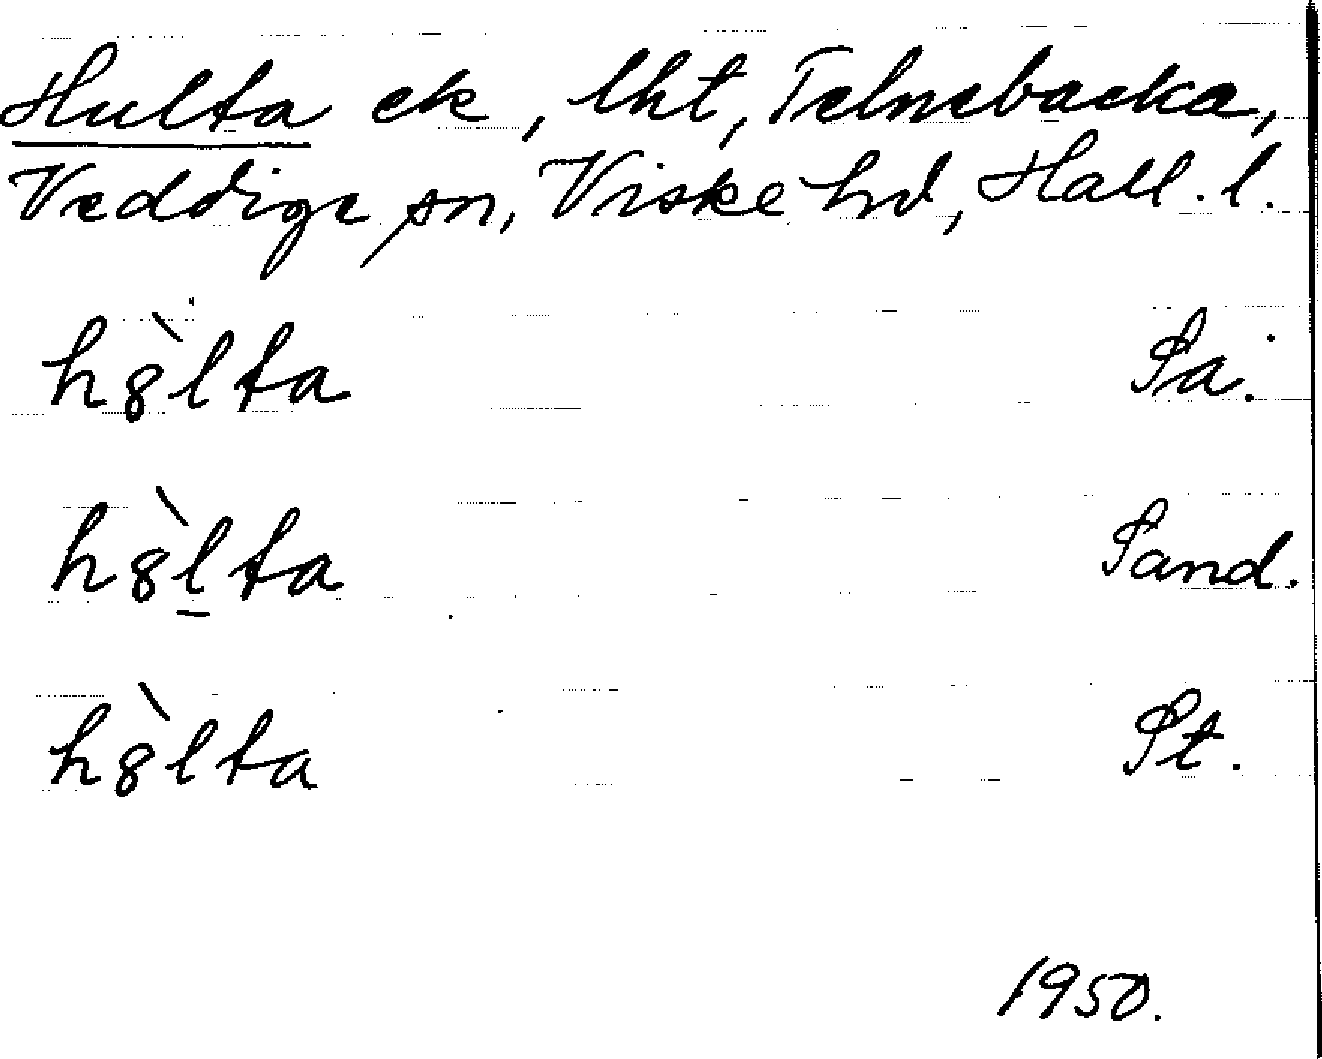 Hulta ek, lht, Telnebacka,
Veddige sn, Viske hd, Hall. l.
h8̀lta Så.
h8̀l̲ta Sand.
h8̀lta St.
1950.